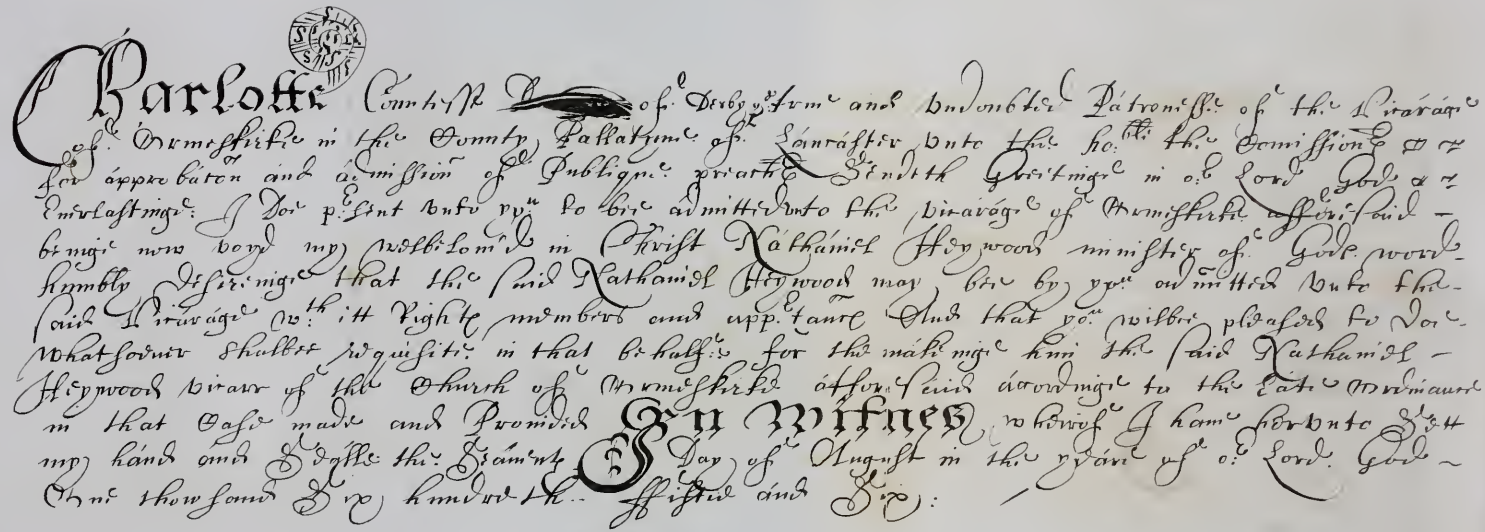 Charlotte Countesse of Derby ye true and undoubted Patronesse of the Vicarage
of Ormeskirke in the County Pallatyne of Lancaster unto the ho:ble the Comissione
for approbacon and admission of Publique preache Sendeth Greetinge in or Lord God
Everlastinge: I Doe p:sent unto you to bee admitted unto the vicarage of Ormeskirke afforesaid –
beinge now voyd my welbeloued in Christ Nathaniel Heywood minister of Gods word
humbly desireinge that the said Nathaniel Heywood may bee by you admitted unto the –
said Vicarage wth itt Rights members and app:tance And that you wilbee pleased to doe
whatsoeuer shalbee requisite in that behalfe for the makeinge him the said Nathaniel –
Heywood vicarr of the Church of Ormeskirke afforesaid accordinge to the late Ordinance
in that Case made and Prouided In Witnes whereof I haue hereunto Sett
my hand and Sealle the Day of August in the yeare of or Lord God –
One thowsand Six hundreth ffiftie and Six: